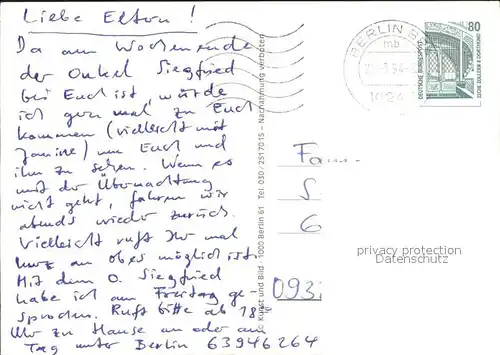 Liebe Eltern!
Da am Wochenende
der Onkel Siegfried
bei Euch ist, würde
ich gern mal zu Euch
kommen (vielleicht mit
Janine) um Euch und
ihn zu sehen. Wenn es
mit der Übernachtung
nicht geht, fahren wir
abends wieder zurück.
Vielleicht ruft Ihr mal
kurz an ob es möglich ist.
Mit dem O. Siegfried
habe ich am Freitag ge-
sprochen. Ruft bitte ab 18
Uhr zu Hause an oder am
Tag unter Berlin 63946264
Kunst und Bild · 1000 Berlin 61 Tel. 030/2517015 – Nachahmung verboten
BERLIN
mb
80
DEUTSCHE BUNDESPOST
ZECHE ZOLLERN II · DORTMUND
Fam
S
6
093
privacy protection
Datenschutz